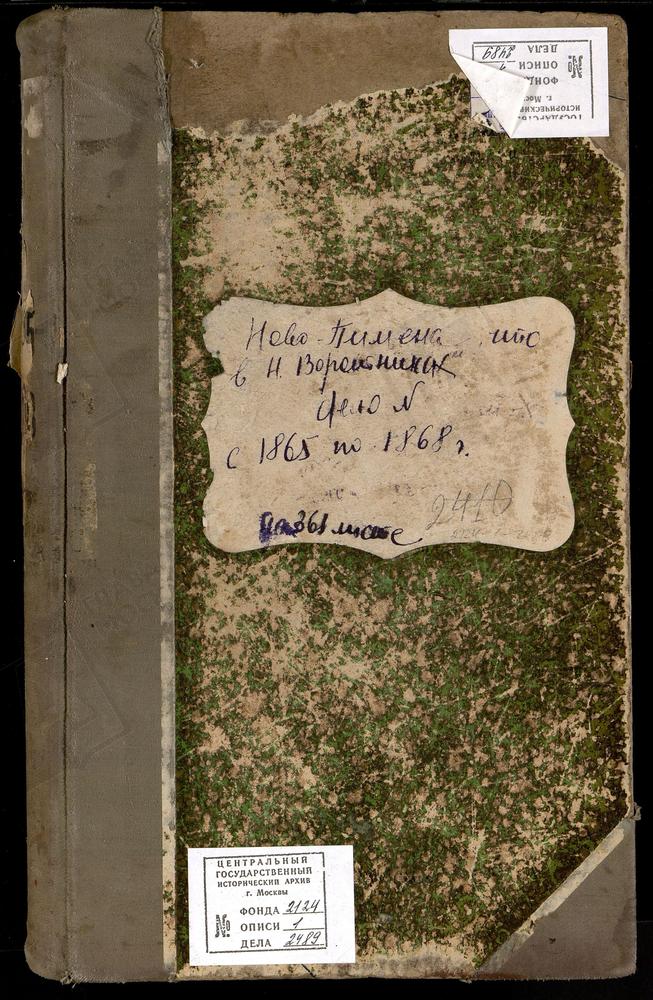 ДЕЛА 2489
ОПИСИ 1
ФОНДА
г. Мос
ИСТОРИЧЕСКИЙ
ГОСУДАРСТВ
Ново-Пимена что
в Н. Воротниках
Дело №
с 1865 по 1868 г.
2410
На 361 листе
ЦЕНТРАЛЬНЫЙ
ГОСУДАРСТВЕННЫЙ
ИСТОРИЧЕСКИЙ АРХИВ
г. Москвы
№ ФОНДА 2124
ОПИСИ 1
ДЕЛА 2489